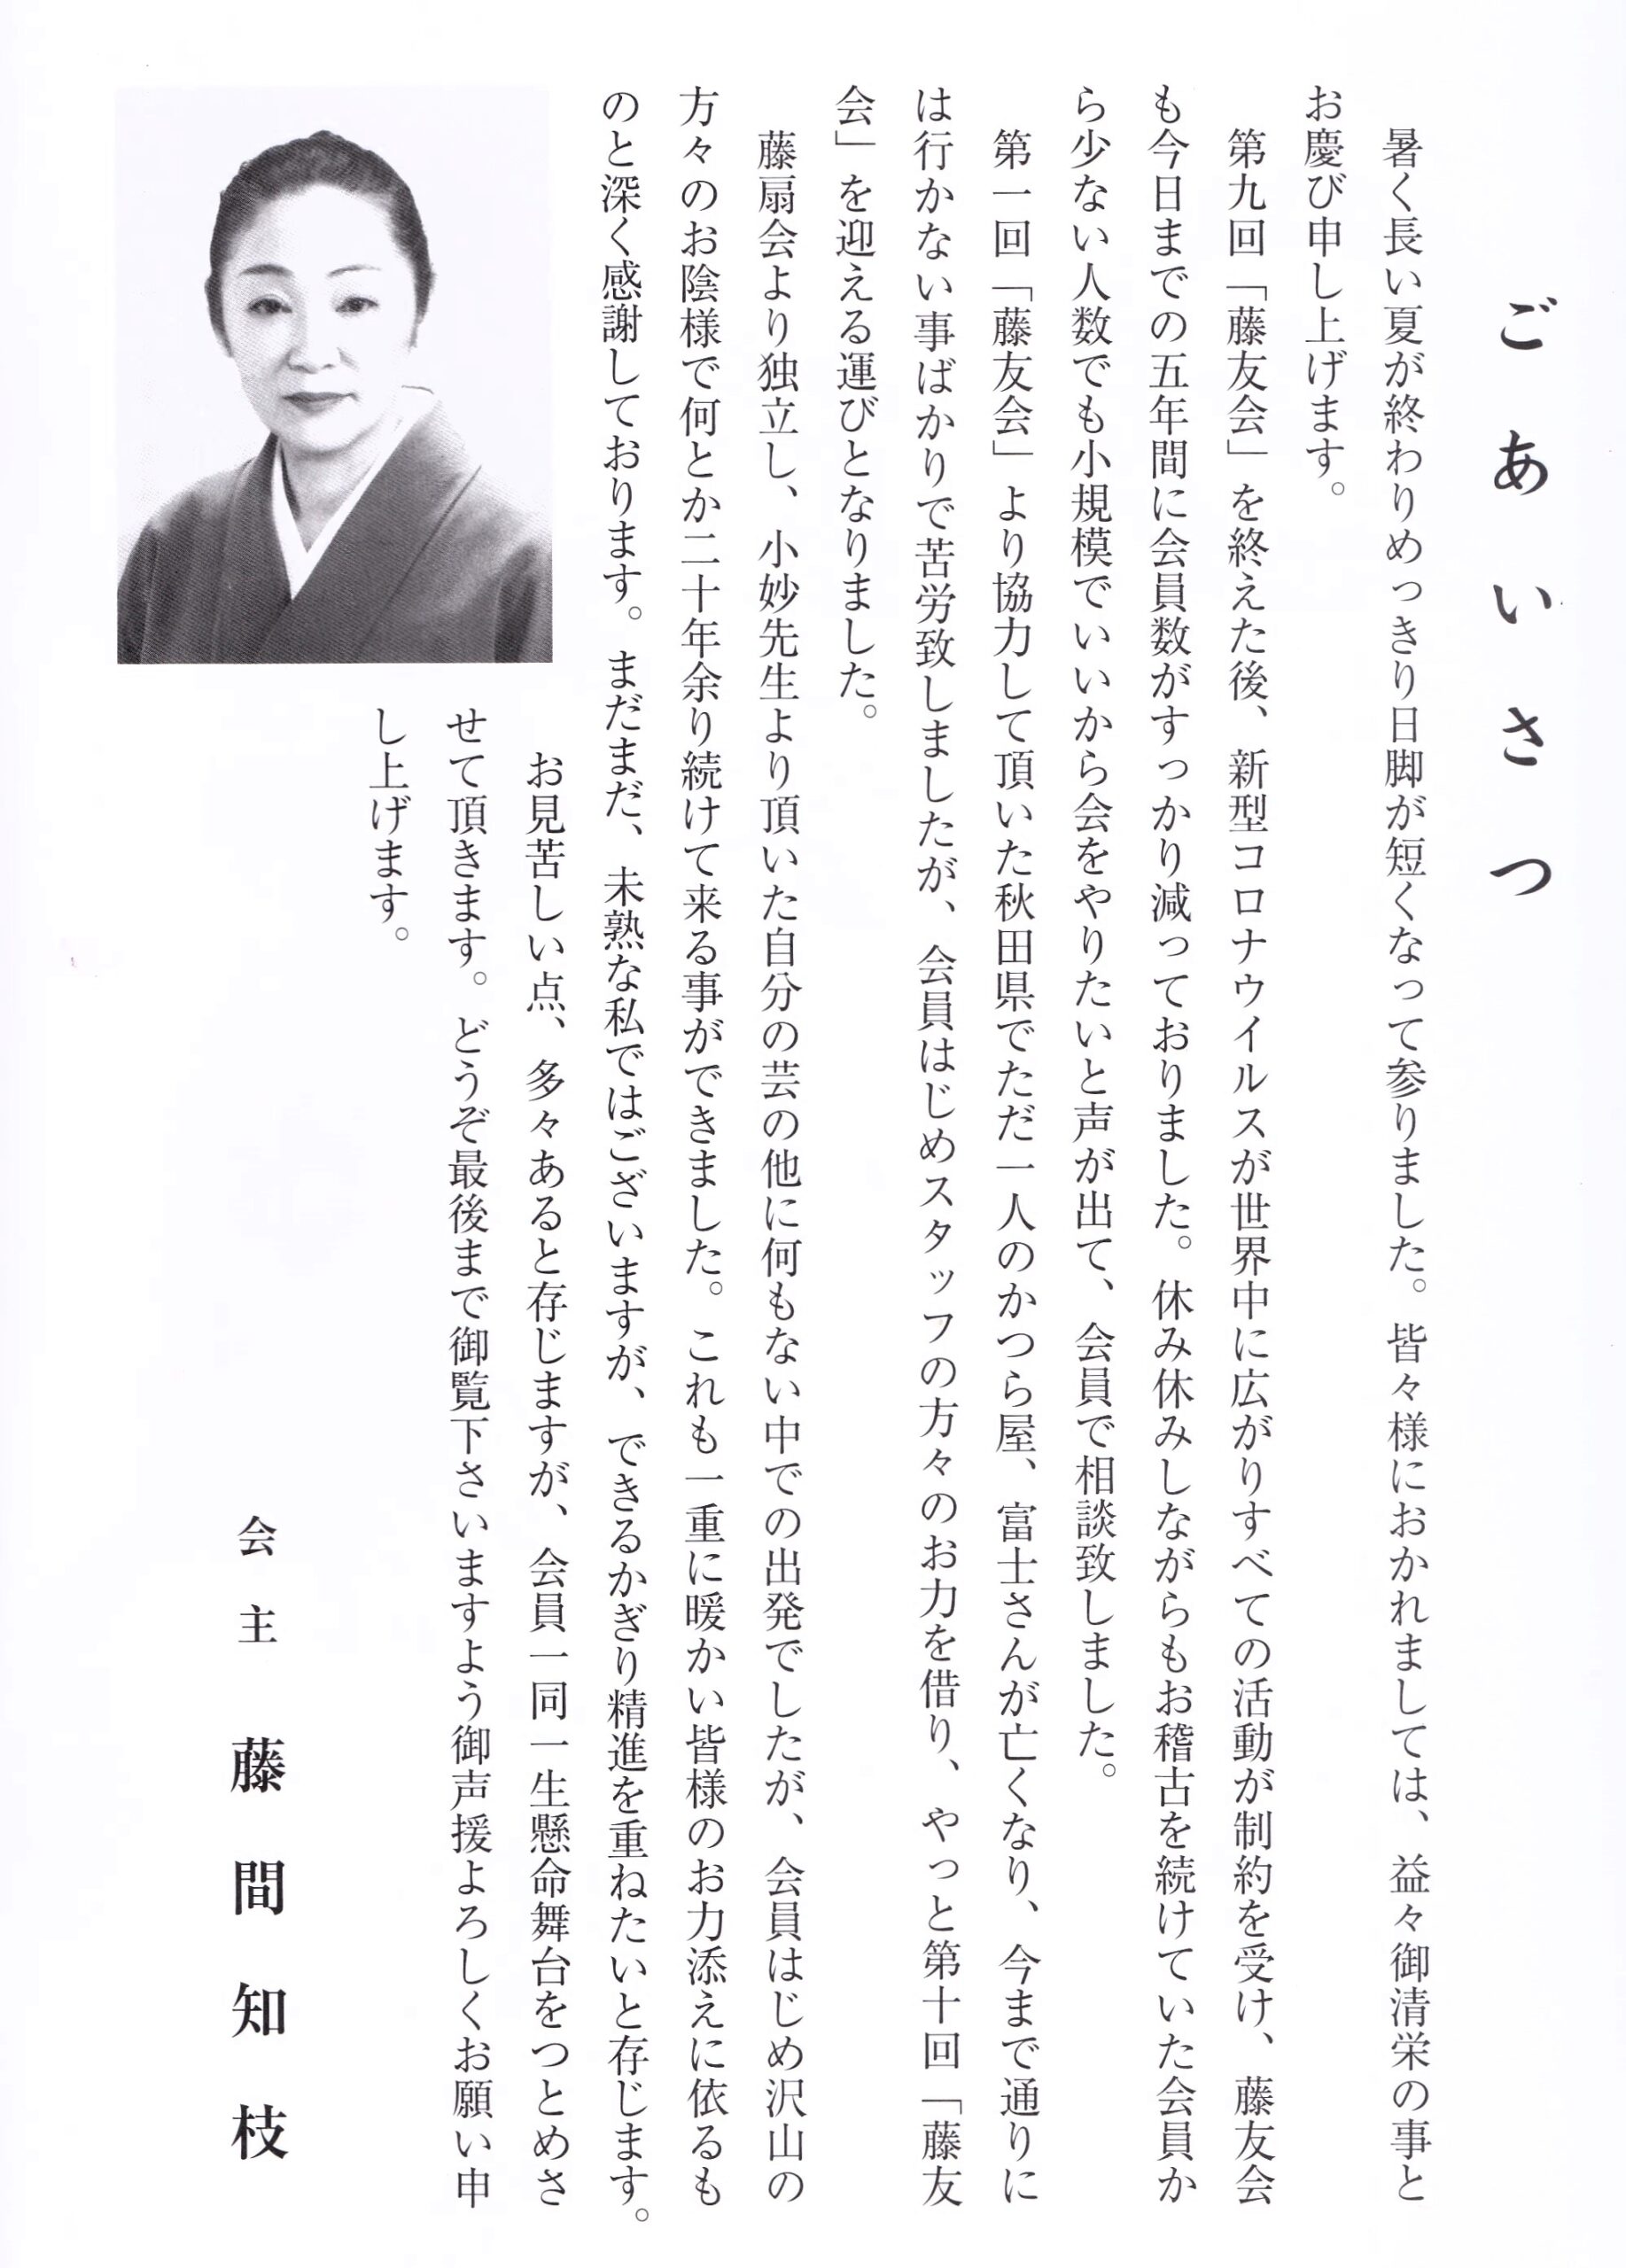 ごあいさつ
暑く長い夏が終わりめっきり日脚が短くなって参りました。皆々様におかれましては、益々御清栄の事と
お慶び申し上げます。
第九回「藤友会」を終えた後、新型コロナウイルスが世界中に広がりすべての活動が制約を受け、藤友会
も今日までの五年間に会員数がすっかり減っておりました。休み休みしながらもお稽古を続けていた会員か
ら少ない人数でも小規模でいいから会をやりたいと声が出て、会員で相談致しました。
第一回「藤友会」より協力して頂いた秋田県でただ一人のかつら屋、富士さんが亡くなり、今まで通りに
は行かない事ばかりで苦労致しましたが、会員はじめスタッフの方々のお力を借り、やっと第十回「藤友
会」を迎える運びとなりました。
藤扇会より独立し、小妙先生より頂いた自分の芸の他に何もない中での出発でしたが、会員はじめ沢山の
方々のお陰様で何とか二十年余り続けて来る事ができました。これも一重に暖かい皆様のお力添えに依るも
のと深く感謝しております。まだまだ、未熟な私ではございますが、できるかぎり精進を重ねたいと存じます。
お見苦しい点、多々あると存じますが、会員一同一生懸命舞台をつとめさ
せて頂きます。どうぞ最後まで御覧下さいますよう御声援よろしくお願い申
し上げます。
会主 藤間知枝